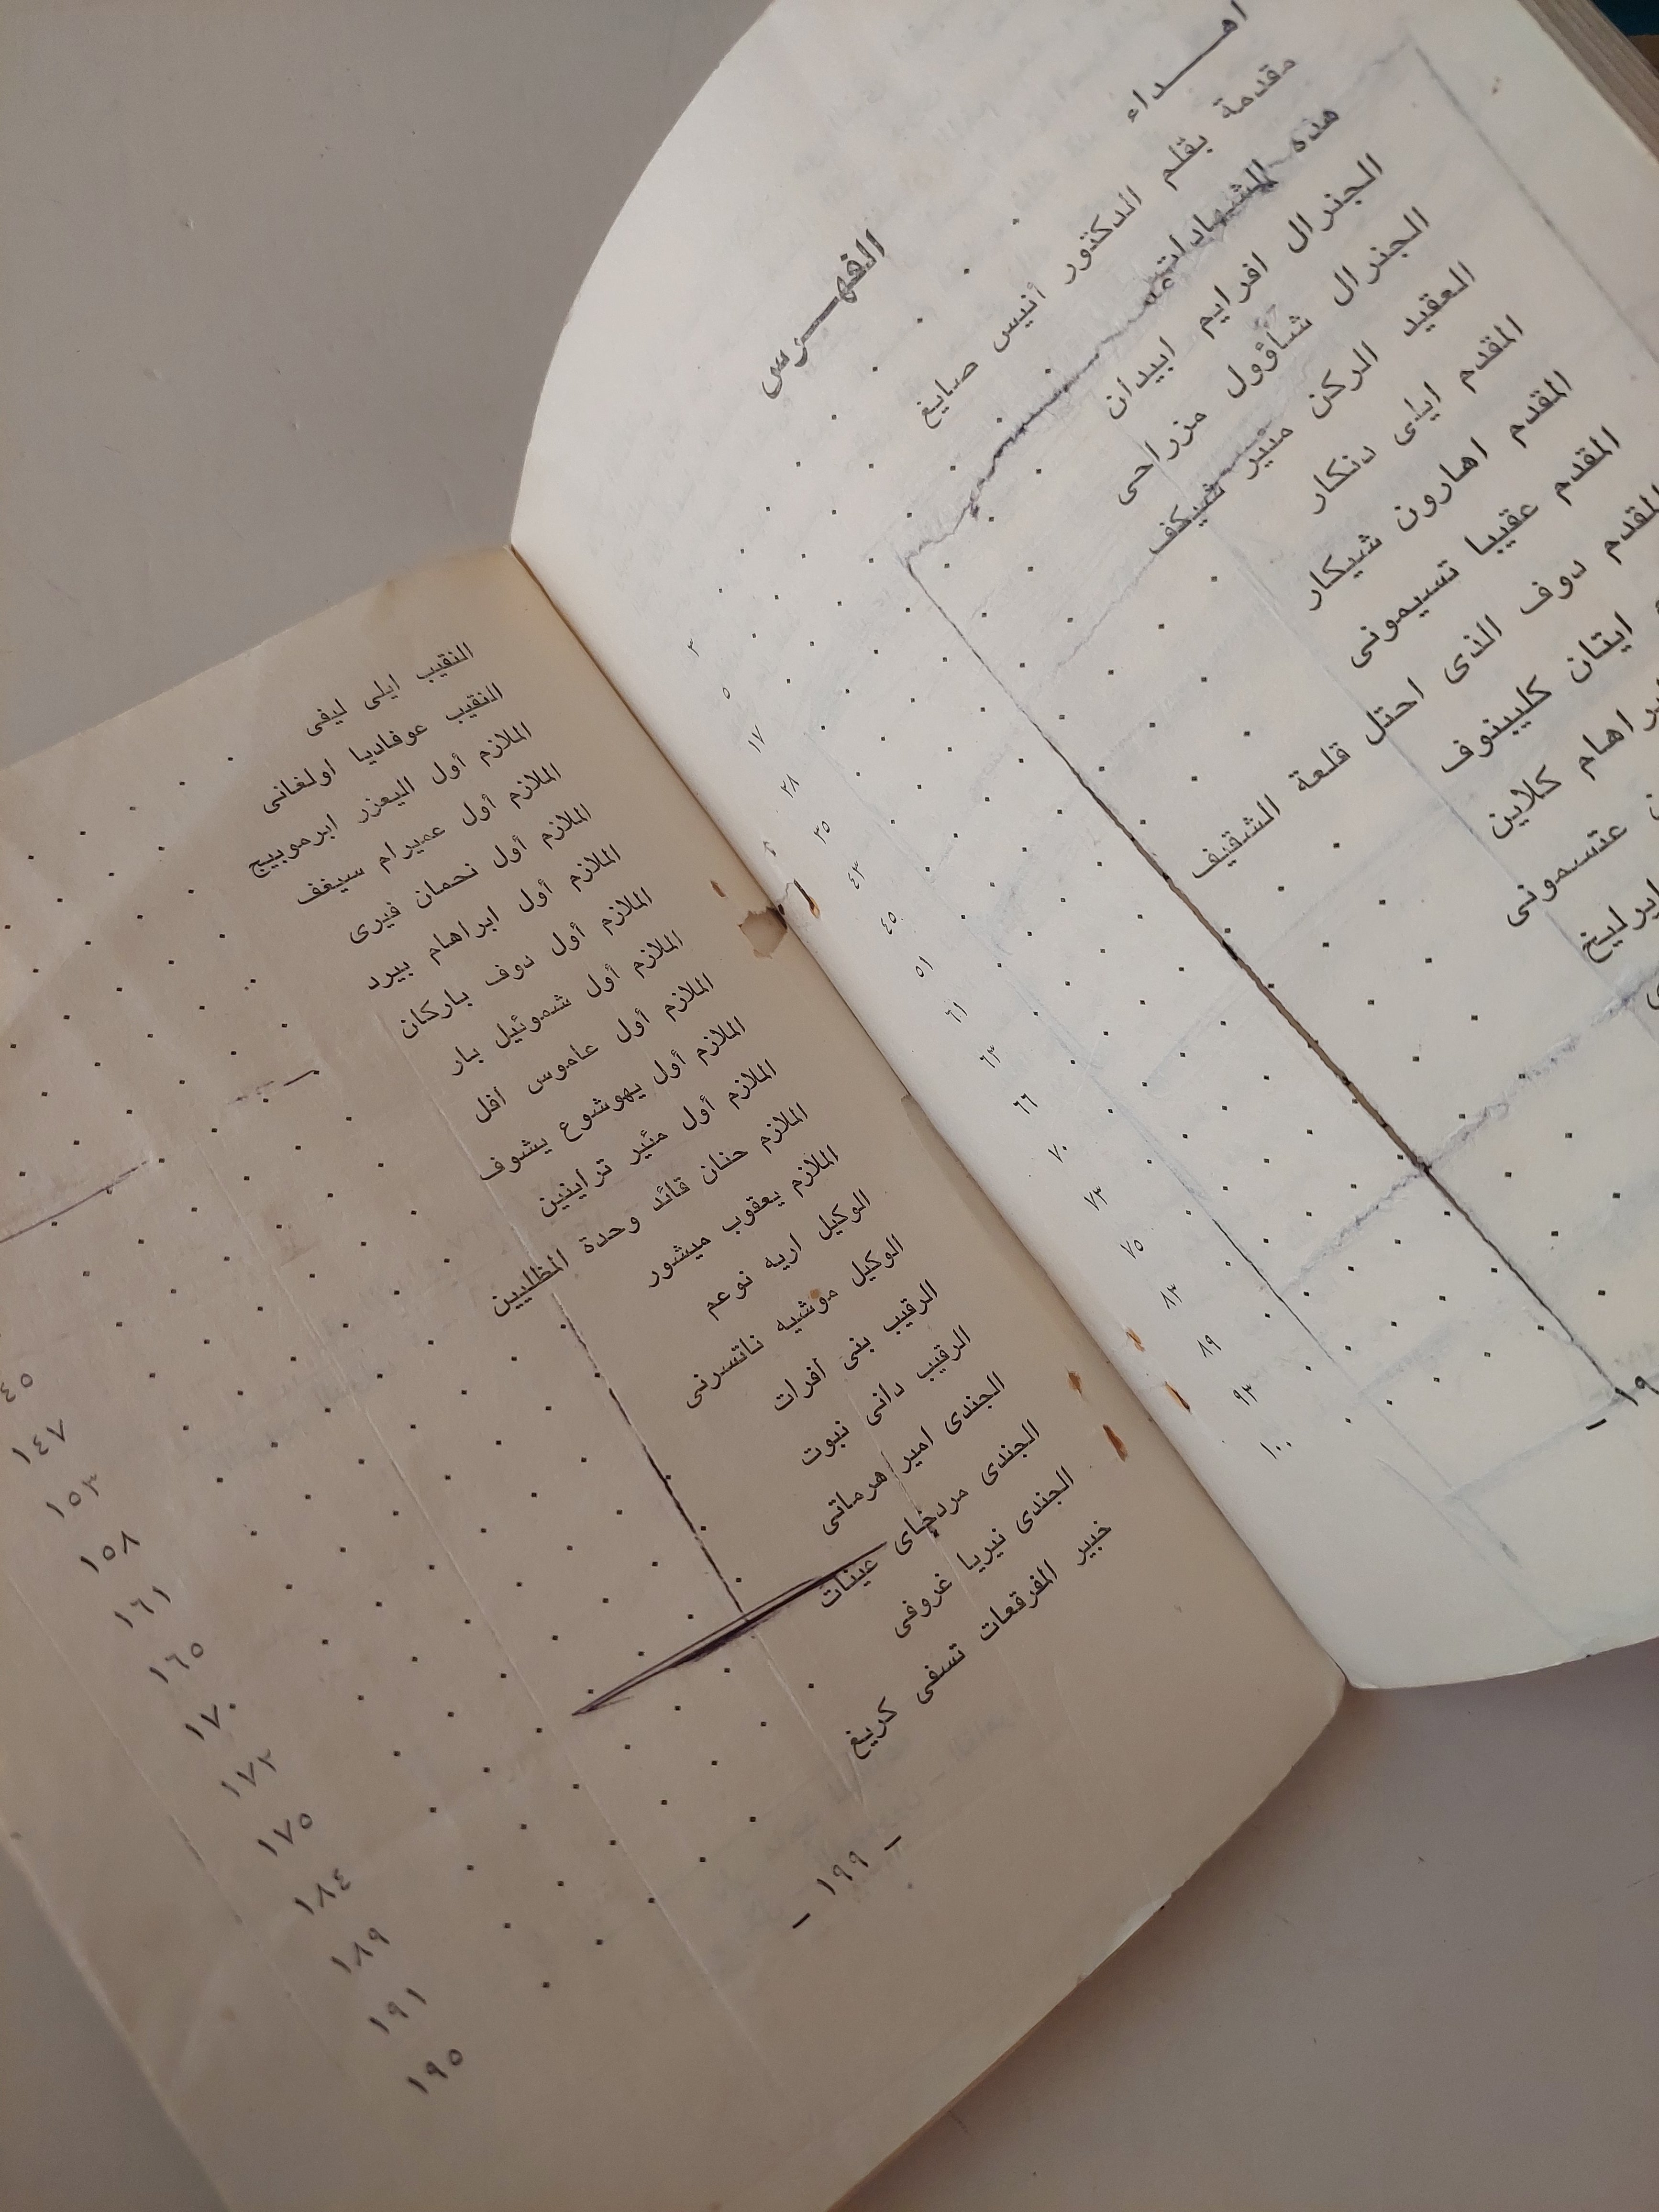 الفهـــرس
اهـــداء
مقدمة بقلم الدكتور أنيس صايغ
هذه الشهادات
الجنرال افرايم ابيدان
الجنرال شاؤول مزراحى
العقيد الركن مئير شيكف
المقدم ايلى دنكار
المقدم اهارون شيكار
المقدم عقيبا تسيمونى
المقدم دوف الذى احتل قلعة الشقيف
ايتان كليينوف
كلاين
عتسمونى
٣
٥
١٧
٢٨
٣٥
٤٣
٤٥
٥١
٦١
٦٣
٦٦
٧٠
٧٣
٧٥
٨٣
٨٩
٩٣
١٠٠
النقيب ايلى ليفى
النقيب عوفاديا اولغانى
الملازم أول اليعزر ابرموبيج
الملازم أول عميرام سيغف
الملازم أول نحمان فيرى
الملازم أول ابراهام بيرد
الملازم أول دوف باركان
الملازم أول شموئيل بار
الملازم أول عاموس افل
الملازم أول يهوشوع يشوف
الملازم أول مئير تراينين
الملازم حنان قائد وحدة المظليين
الملازم يعقوب ميشور
الوكيل اريه نوعم
الوكيل موشيه ناتسرنى
الرقيب بنى افرات
الرقيب دانى نبوت
الجندى امير هرماتى
الجندى مردخاى عينات
الجندى نيريا غروفى
خبير المفرقعات تسفى كريغ
١٤٧
١٥٣
١٥٨
١٦١
١٦٥
١٧٠
١٧٣
١٧٥
١٨٤
١٨٩
١٩١
١٩٥
– ١٩٩ –